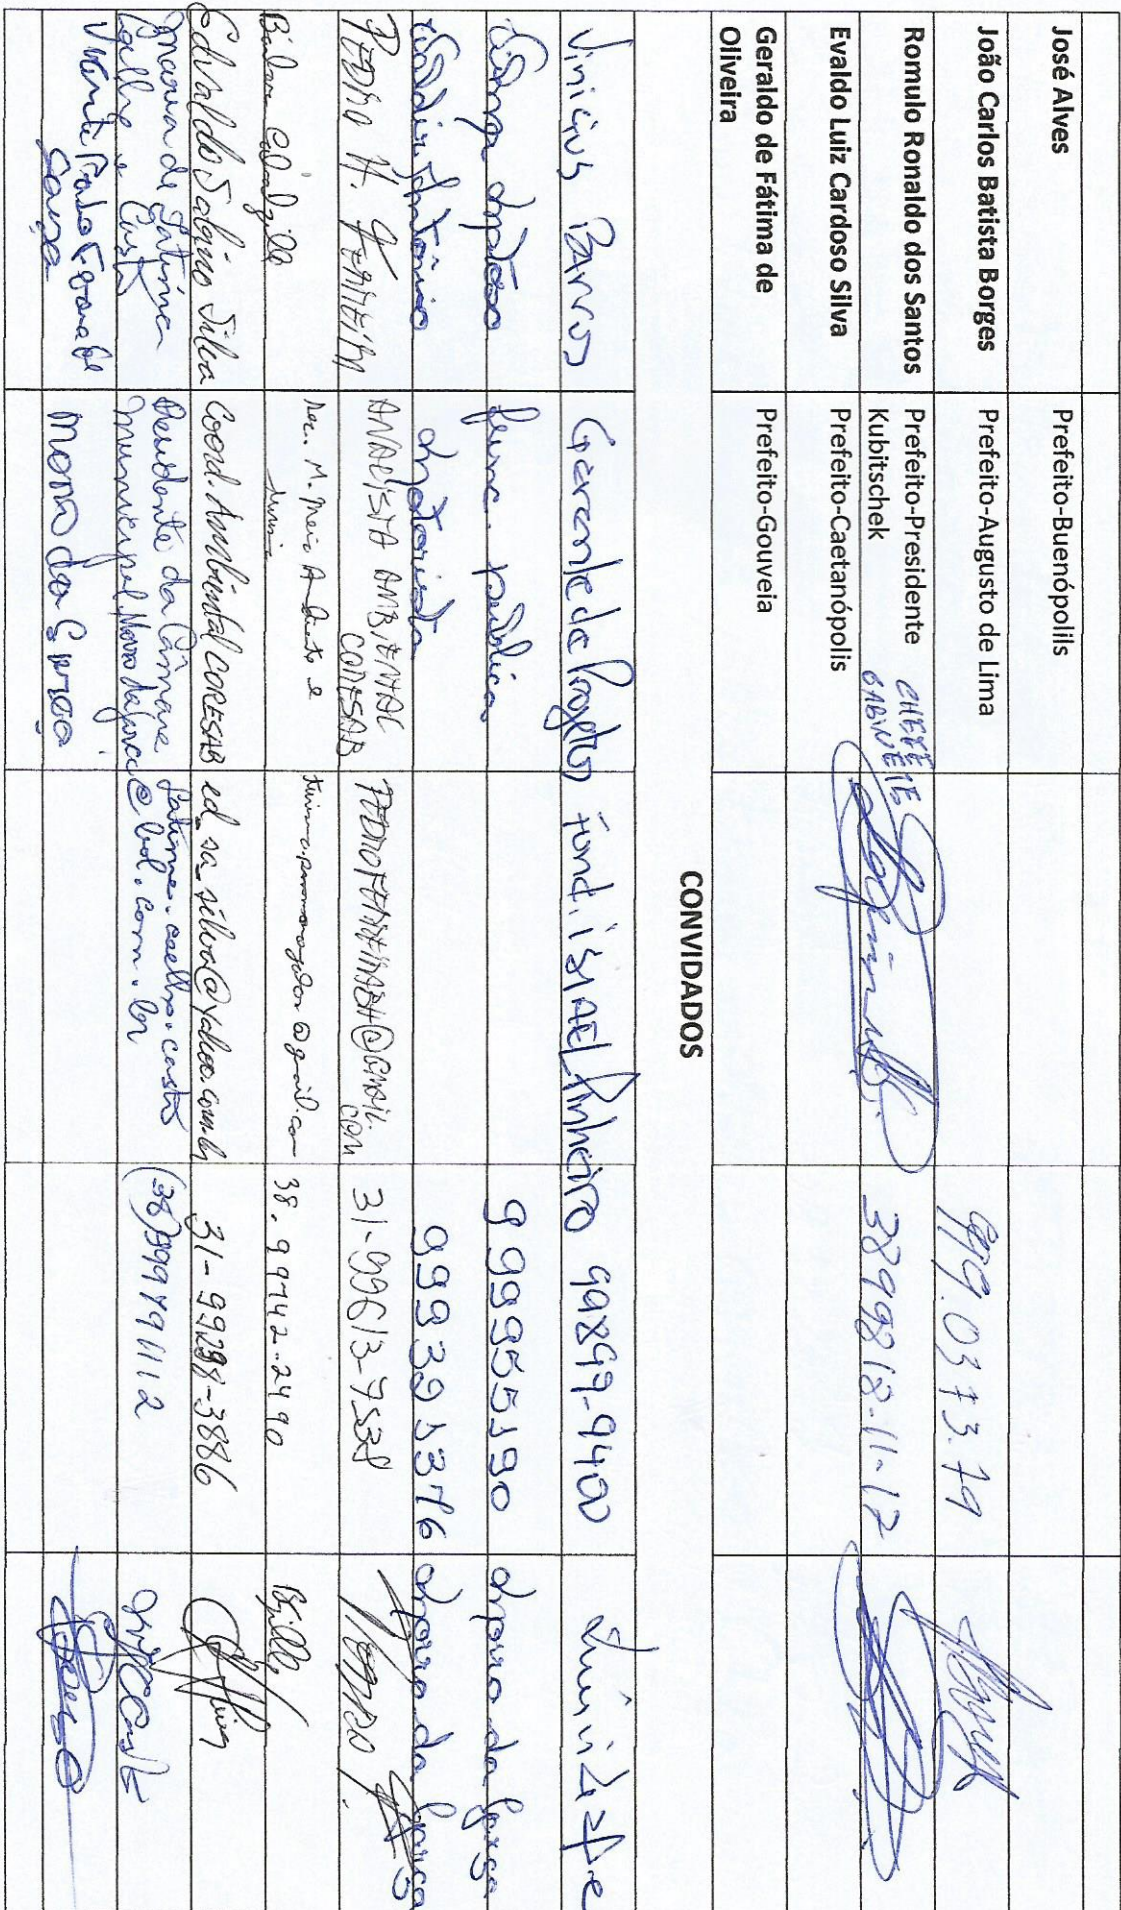 José Alves
Prefeito-Buenópolils
João Carlos Batista Borges
Prefeito-Augusto de Lima
999.0373.79
Romulo Ronaldo dos Santos
Prefeito-Presidente
Kubitschek
CHEFE
GABINETE
3899818-11-12
Evaldo Luiz Cardoso Silva
Prefeito-Caetanópolis
Geraldo de Fátima de
Oliveira
Prefeito-Gouveia
CONVIDADOS
Vinicius Barros
Gerente de Projetos
Fund. ISRAEL Pinheiro
99899-9400
func. publica
999955190
Morro da Garça
Motorista
999391376
Morro da Garça
PEDRO H. FERREIRA
ANALISTA AMBIENTAL
CORESAB
PEDROFERREIRAEH@GMAIL.
COM
31-99613-7538
Sec. M. Meio Ambiente e
38.99742-2490
Edvaldo Sabino Silva
Coord. Ambiental CORESAB
ed_sa_silva@yahoo.com.br
31-99298-3886
Maria de Fátima
Coelho e Costa
Presidente da Câmara
Municipal Morro da Garça
fatima.coelho.costa
@bol.com.br
(38)999791112
Morro da Garça